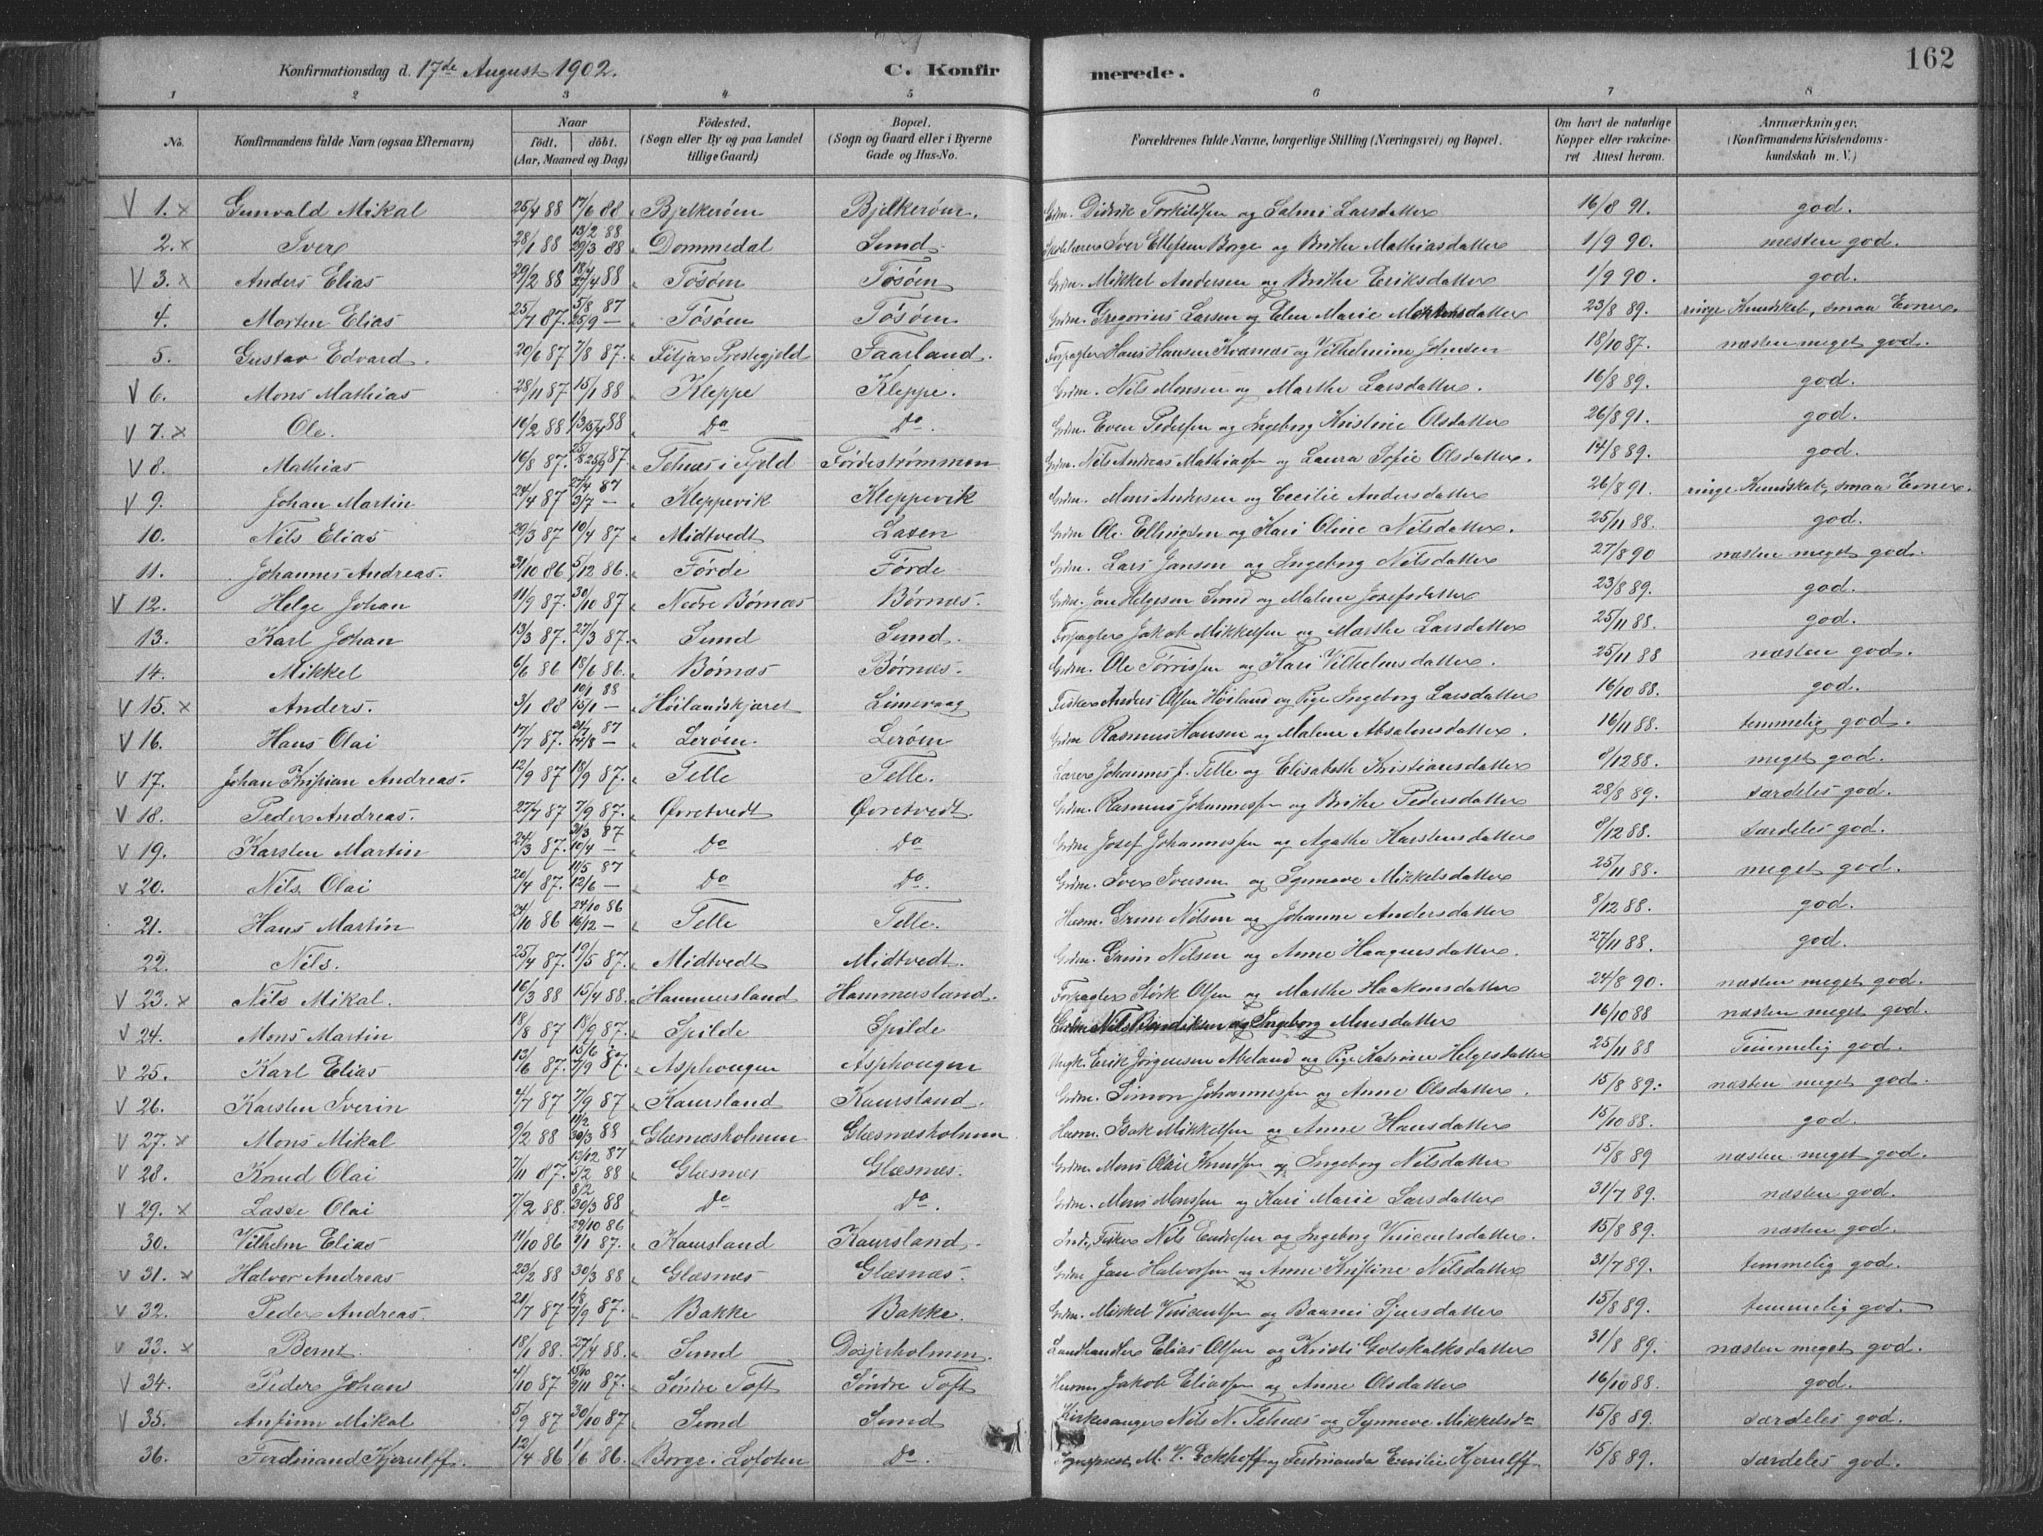 162
Konfirmationsdag d. 17de August 1902. C. Konfir merede.
1 2 3 4 5 6 7 8
No. Konfirmandens fulde Navn (ogsaa Efternavn) Naar født. døbt. (Aar, Maaned og Dag) Fødested. (Sogn eller By og paa Landet tillige Gaard) Bopæl. (Sogn og Gaard eller i Byerne Gade og Hus-No. Forældrenes fulde Navne, borgerlige Stilling (Næringsvei) og Bopæl. Om havt de naturlige Kopper eller vakcineret Attest herom. Anmærkninger. (Konfirmandens Kristendomskundskab m. V.)
V 1. x Gunvald Mikal 25/4 88 17/6 88 Bjelkerøen Bjelkerøen. Grdm. Didrik Torkildsen og Salmi Larsdatter 16/8 91. god.
2. x Iver 28/1 88 13/2 88 29/3 88 Dommedal Sund Iver Ellefsen Borge og Brithe Mathiasdatter 1/9 90. næsten god.
V 3. x Anders Elias 29/2 88 27/4 88 Tøsøen Tøsøen Grdm. Mikkel Andersen og Brithe Eriksdatter 1/9 90. god.
4. Morten Elias 25/7 87. 5/8 87 25/9 — Tøsøen Tøsøen Grdm. Gregorius Larsen og Elen Marie Mortensdatter 23/8 89. ringe Kundskab, smaa Evner.
5. Gustav Edvard. 20/6 87 7/8 87. Fitjar Prestegjeld Faarland. Forpagter Hans Hansen Kvænæs og Vilhelmine Johnsen 18/10 87. næsten meget god.
V 6. Mons Mathias 28/11 87 15/1 88 Kleppe Kleppe. Grdm. Nils Monsen og Marthe Larsdatter. 16/8 89. god.
V 7. x Ole. 16/2 88 Do Do. Grdm. Even Pedersen og Ingeborg Kristine Olsdatter 26/8 91. god.
V 8. Mathias 16/8 87. 25/9 87 Telnæs i Fjeld Førdestrømmen Grdm. Nils Andreas Mathiassen og Laura Sofie Olsdatter. 14/8 89. god.
V 9. Johan Martin 24/4 87 27/4 87 3/7 — Kleppevik Kleppevik Grdm. Mons Andersen og Cecilie Andersdatter 26/8 91. ringe Kundskab, smaa Evner.
10. Nils Elias 29/3 87 10/4 87 Midtvedt Laxen Grdm Ole Ellingsen og Kari Oline Nilsdatter. 25/11 88. god.
11. Johannes Andreas. 31/10 86 5/12 86. Førde Førde Grdm. Lars Jansen og Ingeborg Nilsdatter 27/8 90 næsten meget god.
V 12. Helge Johan 11/9 87. 30/10 87 Nedre Børnæs Børnæs. Grdm. Jon Helgesen Sund og Malene Josefsdatter 23/8 89. god.
13. Karl Johan 13/3 87. 27/3 87. Sund Sund. Forpagter Jakob Mikkelsen og Marthe Larsdatter 25/11 88. god.
14. Mikkel 6/6 86 18/6 86. Børnæs Børnæs. Grdm. Ole Tørrissen og Kari Vilhelmsdatter. 25/11 88 næsten god.
V 15. x Anders. 3/1 88 10/1 88 15/1 — Høilandskjæret Limevaag Fisker Anders Olsen Høiland og Pige Ingeborg Larsdatter 16/10 88. god.
V 16. Hans Olai 17/7 87. 31/7 87 14/8 — Lerøen. Lerøen Grdm Rasmus Hansen og Malene Absalonsdatter. 16/11 88. temmelig god.
V 17. Johan Kristian Andreas. 12/9 87 18/9 87. Telle Telle. Lærer Johannes J. Telle og Elisabeth Kristiansdatter 8/12 88. meget god.
V 18. Peder Andreas. 27/7 87 7/9 87. Øvretvedt Øvretvedt. Grdm. Rasmus Johannessen og Brithe Pedersdatter 28/8 89. særdeles god.
V 19. Karsten Martin 24/3 87. 31/3 87 10/4 — Do Do Grdm Josef Johannessen og Agathe Karstensdatter 8/12 88. særdeles god.
V 20. Nils Olai 20/4 87. 11/5 87 12/6 — Do Do. Grdm. Iver Iversen og Synneve Mikkelsdatter 25/11 88. meget god.
21. Hans Martin 24/10 86 24/10 86 16/12 — Telle Telle. Husm. Grim Nilsen og Johanne Andersdatter 8/12 88. god.
22. Nils. 25/4 87. 19/5 87. Midtvedt Midtvedt. Grdm. Grim Nilsen og Anne Haagensdatter. 27/11 88. god.
V 23. x Nils Mikal. 16/3 88 15/4 88 Hammersland Hammersland. Forpagter Størk Olsen og Marthe Haakonsdatter 24/8 90. næsten meget god.
V 24. Mons Martin 18/8 87 18/9 87. Spilde Spilde Grdm Nils Bendiksen og Ingeborg Monsdatter 16/10 88 næsten meget god.
V 25. Karl Elias 13/6 87. 15/6 7/9 87. Asphougen Asphougen Ungk. Erik Jørgensen Abeland og Pige Katrine Helgesdatter 25/11 88 Temmelig god.
V 26. Karsten Iverin 4/7 87 7/9 87 Kaursland Kaursland. Grdm. Simon Johannessen og Anne Olsdatter. 15/8 89. næsten meget god.
V 27. x Mons Mikal 9/2 88 11/2 30/3 88 Glæsnæsholmen Glæsnæsholmen Husm. Isak Mikkelsen og Anne Hansdatter 15/10 88. god.
V 28. Knud Olai 7/11 87. 13/12 87 5/2 88 Glæsnæs Glæsnæs. Grdm. Mons Olai Knudsen og Ingeborg Nilsdatter 15/8 89 næsten meget god.
V 29. x Lasse Olai 7/2 88. 8/2 30/3 88 Do Do. Grdm. Mons Monssen og Kari Marie Larsdatter 31/7 89. næsten god.
30. Vilhelm Elias 11/10 86 29/10 86 87. Kaursland Kaursland. Inds., Fisker Nils Endresen og Ingeborg Vincentsdatter. 15/8 89. næsten god.
V 31. x Halvor Andreas 23/2 88 30/3 88 Glæsnæs Glæsnæs. Grdm Jan Halvorsen og Anne Kristine Nilsdatter 31/7 89. temmelig god.
V 32. Peder Andreas. 21/7 87 1/8 7/9 87. Bakke Bakke. Grdm. Mikkel Vincentsen og Sjursdatter 15/8 89. temmelig god.
V 33. x Bernt. 18/1 88. 27/4 88. Sund Døsjerholmen. Landhandler Elias Olsen og Kristi Gotskalksdatter 31/8 89. næsten meget god.
V 34. Peder Johan 4/10 87 15/10 87. Søndre Toft Søndre Toft Husm Jakob Eliassen og Anne Olsdatter 16/10 88. god.
V 35. Anfinn Mikal 5/9 87 30/10 87 Sund Sund Kirkesanger Nils N. Telnæs og Synneve Mikkelsdr 15/8 89. særdeles god.
36. Ferdinand Kjerulff. 12/4 86 1/6 86. Borge i Lofoten Do. Sogneprest M. V. Eckhoff og Ferdinanda Emilie Kjerulff 15/8 89. særdeles god.